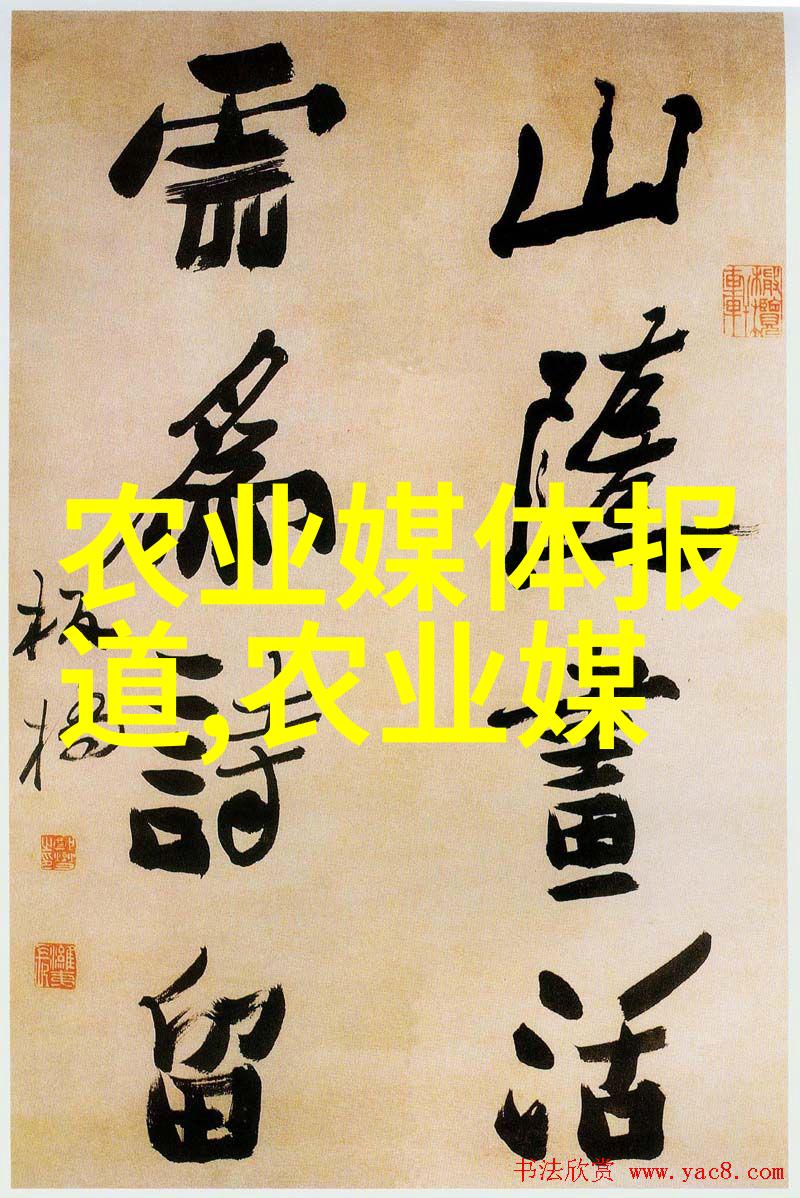 山隨畫活
雲爲詩留
板橋
农业媒体报
道,农业媒
书法欣赏 www.yac8.com